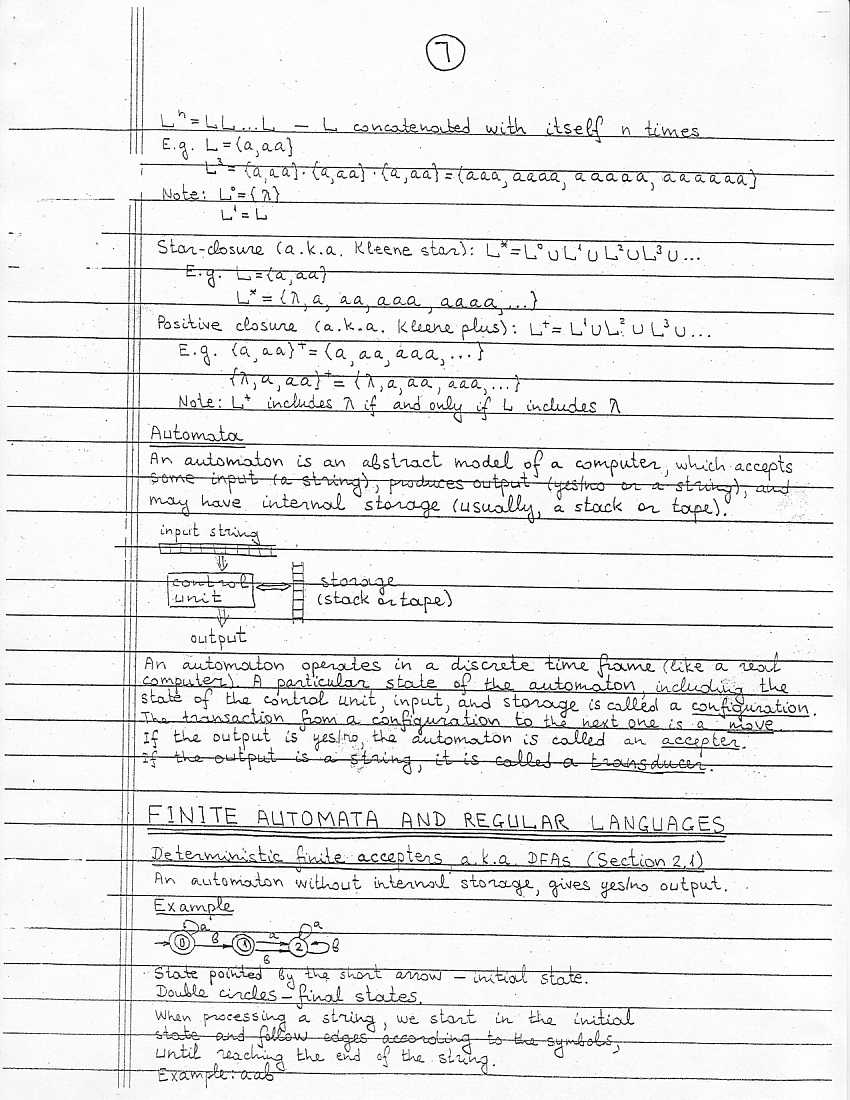 7
Lⁿ = LL...L — L concatenated with itself n times
E.g. L = {a, aa}
L³ = {a, aa} · {a, aa} · {a, aa} = {aaa, aaaa, aaaaa, aaaaaa}
Note: L⁰ = {λ}
L¹ = L
Star-closure (a.k.a. Kleene star): L* = L⁰ ∪ L¹ ∪ L² ∪ L³ ∪ ...
E.g. L = {a, aa}
L* = {λ, a, aa, aaa, aaaa, ...}
Positive closure (a.k.a. Kleene plus): L⁺ = L¹ ∪ L² ∪ L³ ∪ ...
E.g. {a, aa}⁺ = {a, aa, aaa, ...}
{λ, a, aa}⁺ = {λ, a, aa, aaa, ...}
Note: L⁺ includes λ if and only if L includes λ
Automata
An automaton is an abstract model of a computer, which accepts
some input (a string), produces output (yes/no or a string), and
may have internal storage (usually, a stack or tape).
input string
control
unit
storage
(stack or tape)
output
An automaton operates in a discrete time frame (like a real
computer). A particular state of the automaton, including the
state of the control unit, input, and storage is called a configuration.
The transaction from a configuration to the next one is a move.
If the output is yes/no, the automaton is called an accepter.
If the output is a string, it is called a transducer.
FINITE AUTOMATA AND REGULAR LANGUAGES
Deterministic finite accepters a.k.a. DFAs (Section 2.1)
An automaton without internal storage, gives yes/no output.
Example
a a
0 b 1 a 2 b
b
State pointed by the short arrow — initial state.
Double circles — final states.
When processing a string, we start in the initial
state and follow edges according to the symbols,
until reaching the end of the string.
Example: aab